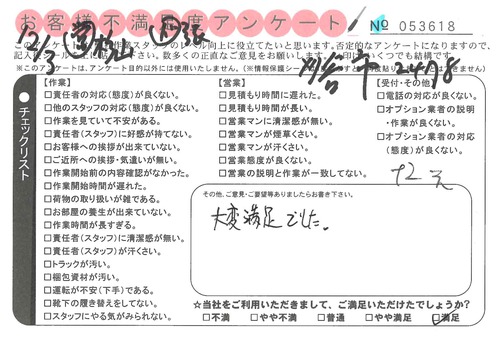 お客様不満足度アンケート
№ 053618
12/3
このアンケートは
作業スタッフのレベル向上に役立てたいと思います。否定的なアンケートになりますので、
数多くの正直なご意見をお願いします。
※このアンケートは、アンケート目的以外には使用いたしません。
チェックリスト
【作業】
□責任者の対応(態度)が良くない。
□他のスタッフの対応(態度)が良くない。
□作業を見ていて不安がある。
□責任者(スタッフ)に好感が持てない。
□お客様への挨拶が出来ていない。
□ご近所への挨拶・気遣いが無い。
□作業開始前の内容確認がなかった。
□作業開始時間が遅れた。
□荷物の取り扱いが雑である。
□お部屋の養生が出来ていない。
□作業時間が長すぎる。
□責任者(スタッフ)に清潔感が無い。
□責任者(スタッフ)が汗くさい。
□トラックが汚い。
□梱包資材が汚い。
□運転が不安(下手)である。
□靴下の履き替えをしてない。
□スタッフにやる気がみられない。
【営業】
□見積もり時間に遅れた。
□見積もり時間が長い。
□営業マンに清潔感が無い。
□営業マンが煙草くさい。
□営業マンが汗くさい。
□営業態度が良くない。
□営業の説明と作業が一致してない。
【受付・その他】
□電話の対応が良くない。
□オプション業者の説明
・作業が良くない。
□オプション業者の対応
(態度)が良くない。
その他、ご意見・ご要望等ありましたらお書き下さい。
大変満足でした。
☆当社をご利用いただきまして、ご満足いただけたでしょうか?
□不満 □やや不満 □普通 □やや満足 ☑満足